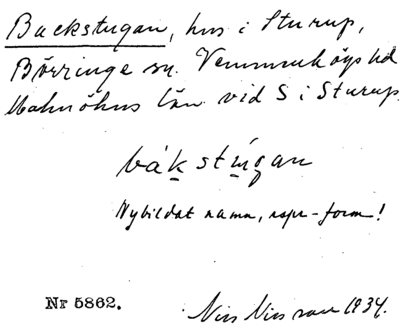 Backstugan, hus i Sturup,
Börringe sn. Vemmenhögs hd
Malmöhus län vid S i Sturup.
bákstùgan
Nybildat namn, rspr-form!
Nr 5862.
Nils Nilsson 1934.